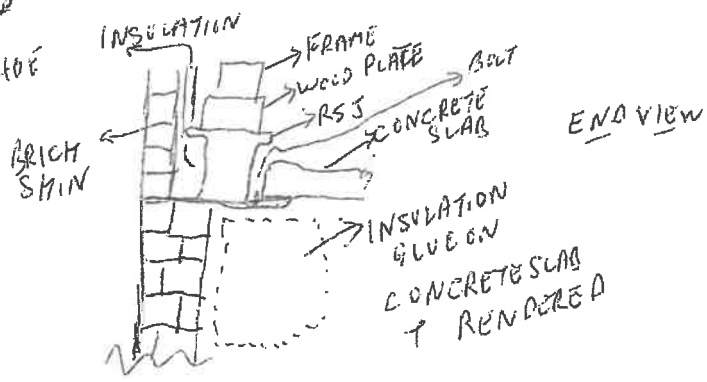 INSULATION
FRAME
WOOD PLATE
RSJ
BOLT
CONCRETE
SLAB
END VIEW
BRICK
SKIN
INSULATION
GLUE ON
CONCRETE SLAB
+ RENDERED